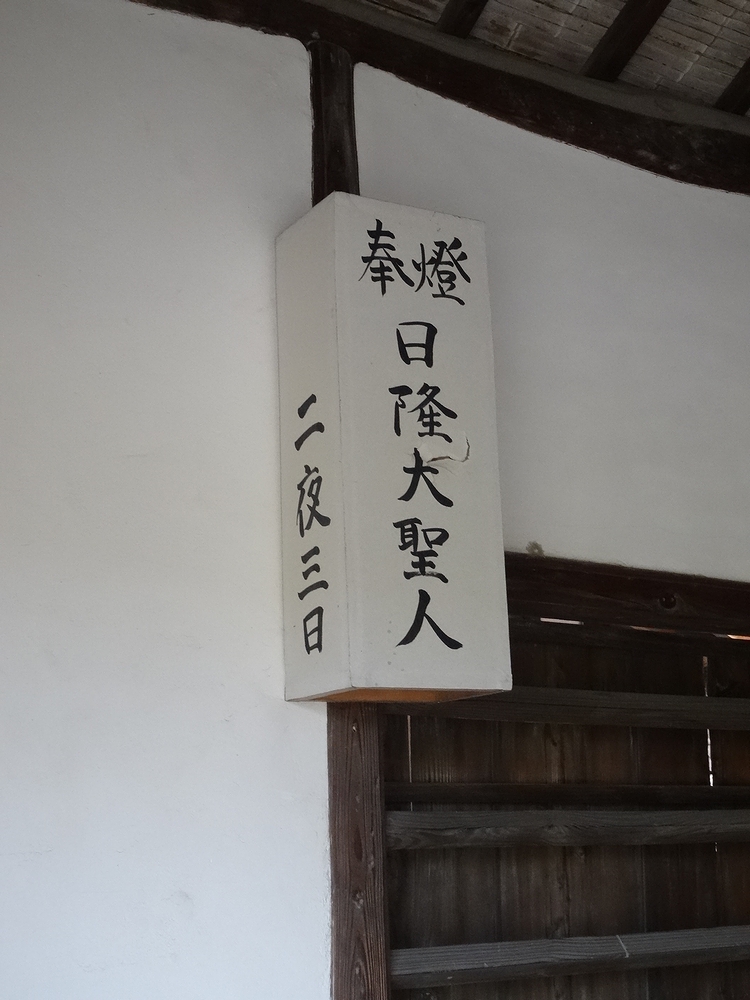 奉燈
日隆大聖人
二夜三日